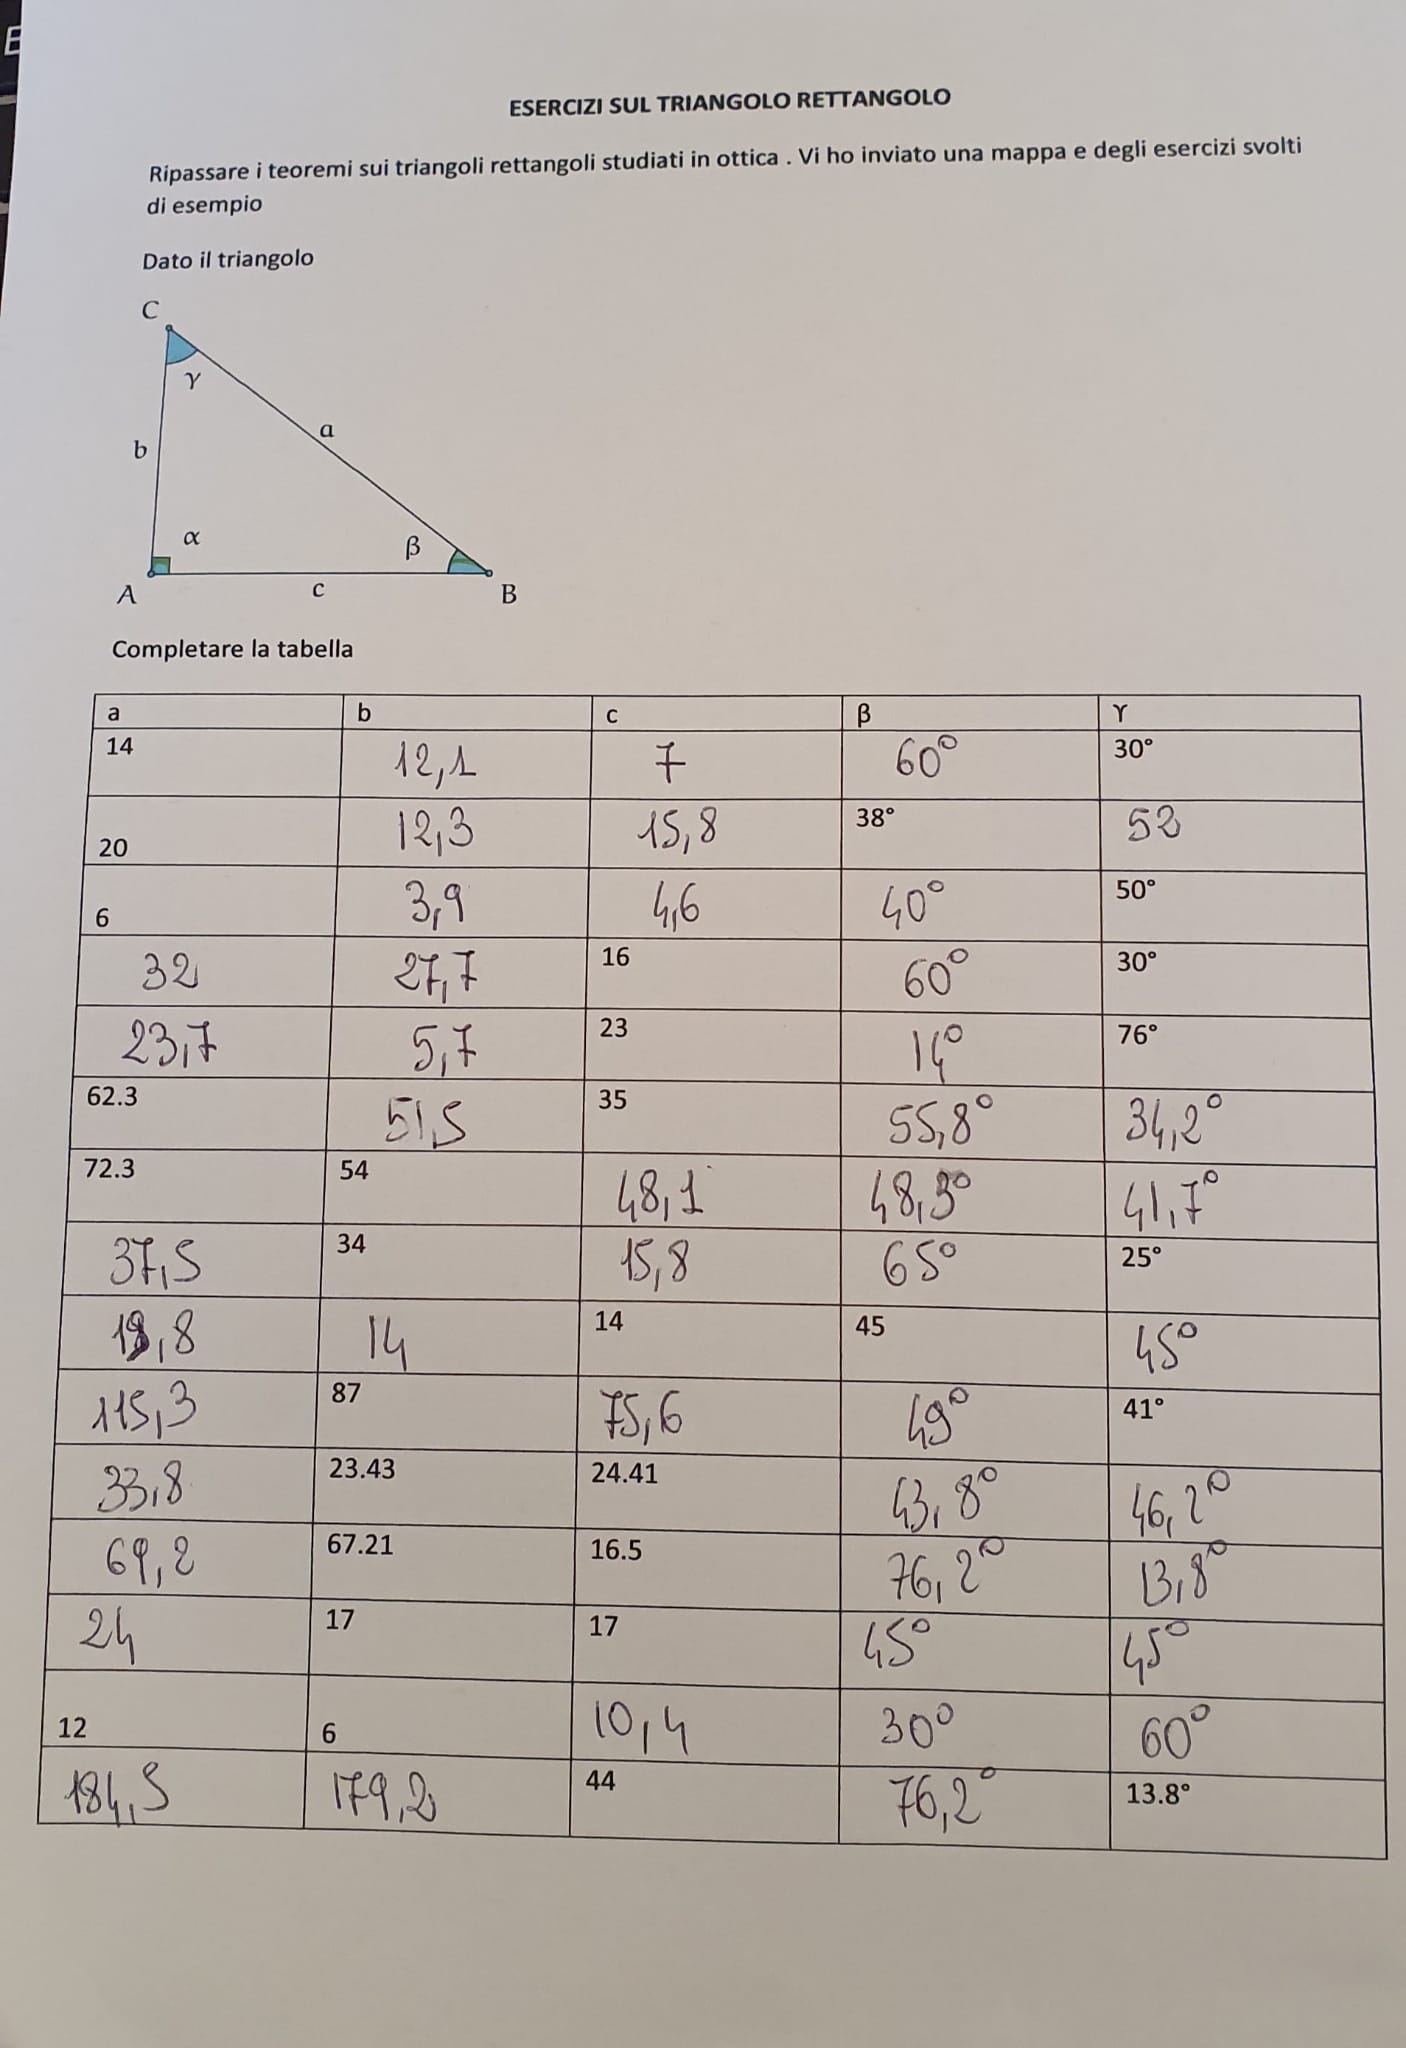 E
ESERCIZI SUL TRIANGOLO RETTANGOLO
Ripassare i teoremi sui triangoli rettangoli studiati in ottica . Vi ho inviato una mappa e degli esercizi svolti
di esempio
Dato il triangolo
C
γ
a
b
α
β
A
c
B
Completare la tabella
a b c β γ
14 12,1 7 60° 30°
20 12,3 15,8 38° 52
6 3,9 4,6 40° 50°
32 27,7 16 60° 30°
23,7 5,7 23 14° 76°
62.3 51,5 35 55,8° 34,2°
72.3 54 48,1 48,3° 41,7°
37,5 34 15,8 65° 25°
19,8 14 14 45 45°
115,3 87 75,6 49° 41°
33,8 23.43 24.41 43,8° 46,2°
69,2 67.21 16.5 76,2° 13,8°
24 17 17 45° 45°
12 6 10,4 30° 60°
184,5 179,2 44 76,2° 13.8°